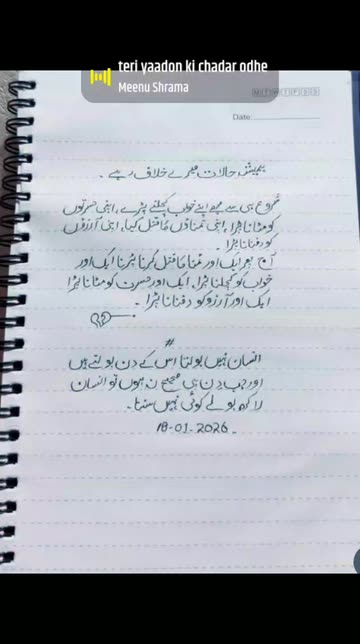 teri yaadon ki chadar odhe
Meenu Shrama
M T W T F S S
Date:
ہمیشہ حالات میرے خلاف رہے ۔
شروع ہی سے مجھے اپنے خواب کچلنے پڑے، اپنی حسرتوں
کو مٹانا پڑا، اپنی تمناؤں کا قتل کیا، اپنی آرزؤں
کو دفنانا پڑا
آج پھر ایک اور تمنا کا قتل کرنا پڑا ایک اور
خواب کو کچلنا پڑا، ایک اور حسرت کو مٹانا پڑا
ایک اور آرزو کو دفنانا پڑا ۔
#
انسان نہیں بولتا اس کے دن بولتے ہیں
اور جب دن ہی صحیح نہ ہوں تو انسان
لاکھ بولے کوئی نہیں سنتا ۔
18-01-2026 -